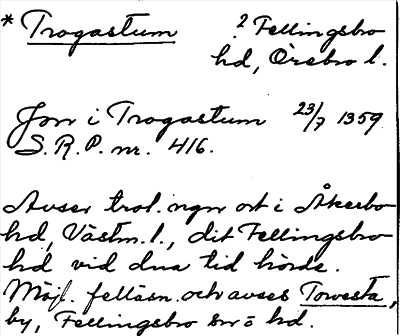 * Trogastum ? Fellingsbro
hd, Örebro l.
Jon i Trogastum 23/7 1359
S.R.P. nr. 416.
Avser trol. ngn ort i Åkerbo
hd, Västm. l., dit Fellingsbro
hd vid dna tid hörde.
Möjl. felläsn. och avses Towesta,
by, Fellingsbro sn o hd.